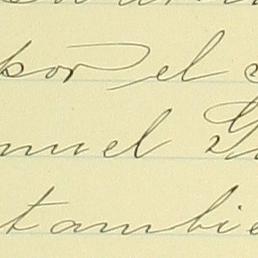 por el
nuel G
tambie